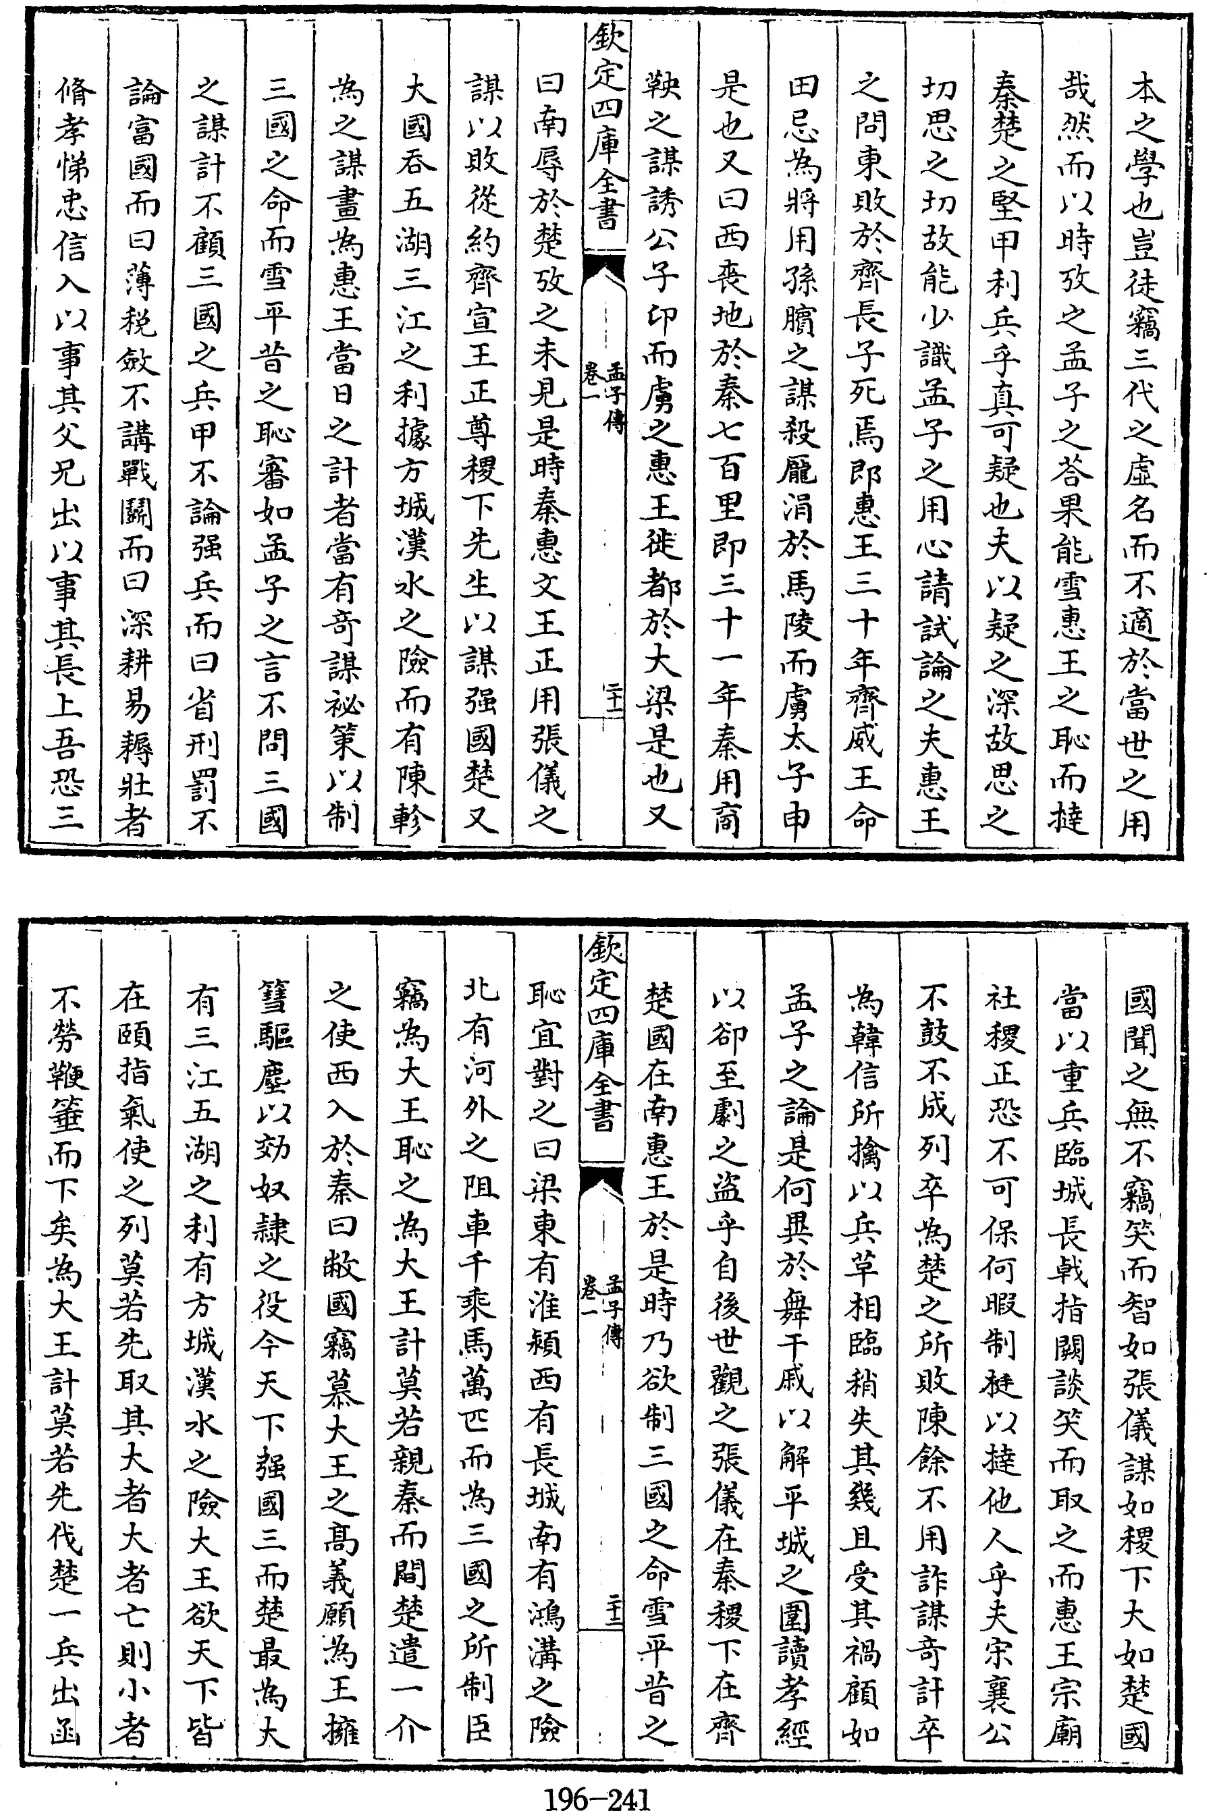 本之學也豈徒竊三代之虛名而不適於當世之用
哉然而以時攷之孟子之荅果能雪惠王之恥而撻
秦楚之堅甲利兵乎真可疑也夫以疑之深故思之
切思之切故能少識孟子之用心請試論之夫惠王
之問東敗於齊長子死焉即惠王三十年齊威王命
田忌為將用孫臏之謀殺龐涓於馬陵而虜太子申
是也又曰西喪地於秦七百里即三十一年秦用商
鞅之謀誘公子卬而虜之惠王徙都於大梁是也又
欽定四庫全書
孟子傳
卷一
二十一
曰南辱於楚攷之未見是時秦惠文王正用張儀之
謀以敗從約齊宣王正尊稷下先生以謀强國楚又
大國吞五湖三江之利據方城漢水之險而有陳軫
為之謀畫為惠王當日之計者當有奇謀祕策以制
三國之命而雪平昔之恥審如孟子之言不問三國
之謀計不顧三國之兵甲不論强兵而曰省刑罰不
論富國而曰薄稅斂不講戰鬭而曰深耕易耨壯者
脩孝悌忠信入以事其父兄出以事其長上吾恐三
國聞之無不竊笑而智如張儀謀如稷下大如楚國
當以重兵臨城長戟指闕談笑而取之而惠王宗廟
社稷正恐不可保何暇制梃以撻他人乎夫宋襄公
不鼓不成列卒為楚之所敗陳餘不用詐謀奇計卒
為韓信所擒以兵革相臨稍失其幾且受其禍顧如
孟子之論是何異於舞干戚以解平城之圍讀孝經
以卻至劇之盜乎自後世觀之張儀在秦稷下在齊
楚國在南惠王於是時乃欲制三國之命雪平昔之
欽定四庫全書
孟子傳
卷一
二十二
恥宜對之曰梁東有淮潁西有長城南有鴻溝之險
北有河外之阻車千乘馬萬匹而為三國之所制臣
竊為大王恥之為大王計莫若親秦而間楚遣一介
之使西入於秦曰敝國竊慕大王之髙義願為王擁
篲驅塵以効奴隸之役今天下强國三而楚最為大
有三江五湖之利有方城漢水之險大王欲天下皆
在頤指氣使之列莫若先取其大者大者亡則小者
不勞鞭箠而下矣為大王計莫若先伐楚一兵出函
196-241